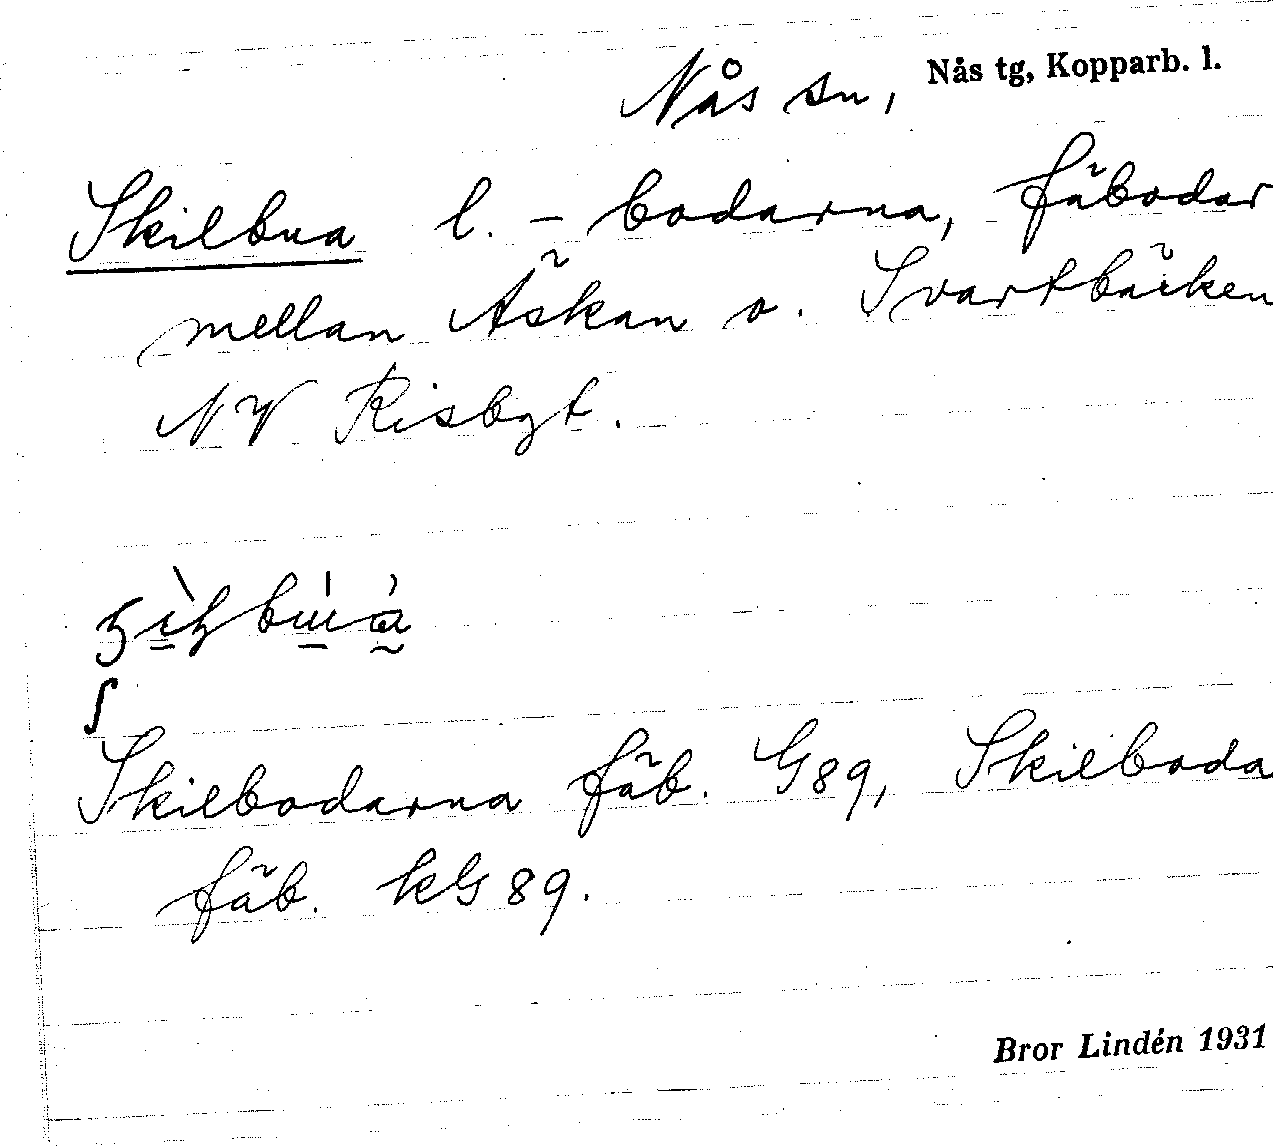 Nås sn, Nås tg, Kopparb. l.
Skilbua l. - bodarna, fäbodar
mellan Äskan o. Svartbäcken
NV Risbgt.
ʃ
Skilbodarna fäb. G89, Skilboda
fäb. kG 89.
Bror Lindén 1931